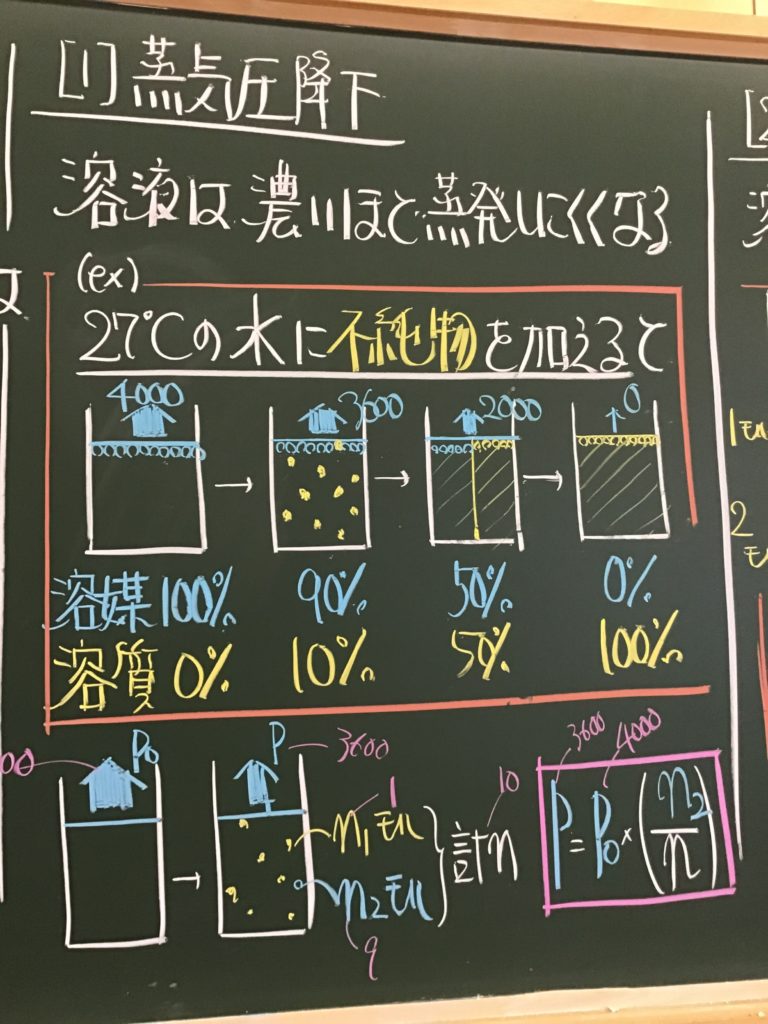 [1] 蒸気圧降下
溶液は濃いほど蒸発しにくくなる
(ex)
27℃の水に不純物を加えると
4000 → 3600 → 2000 → 0
溶媒 100% 90% 50% 0%
溶質 0% 10% 50% 100%
P₀ P 3600
→ n₁モル 1
n₂モル 9
} 計n 10
3600 4000
P = P₀ × (n₂/n)
1モル
2